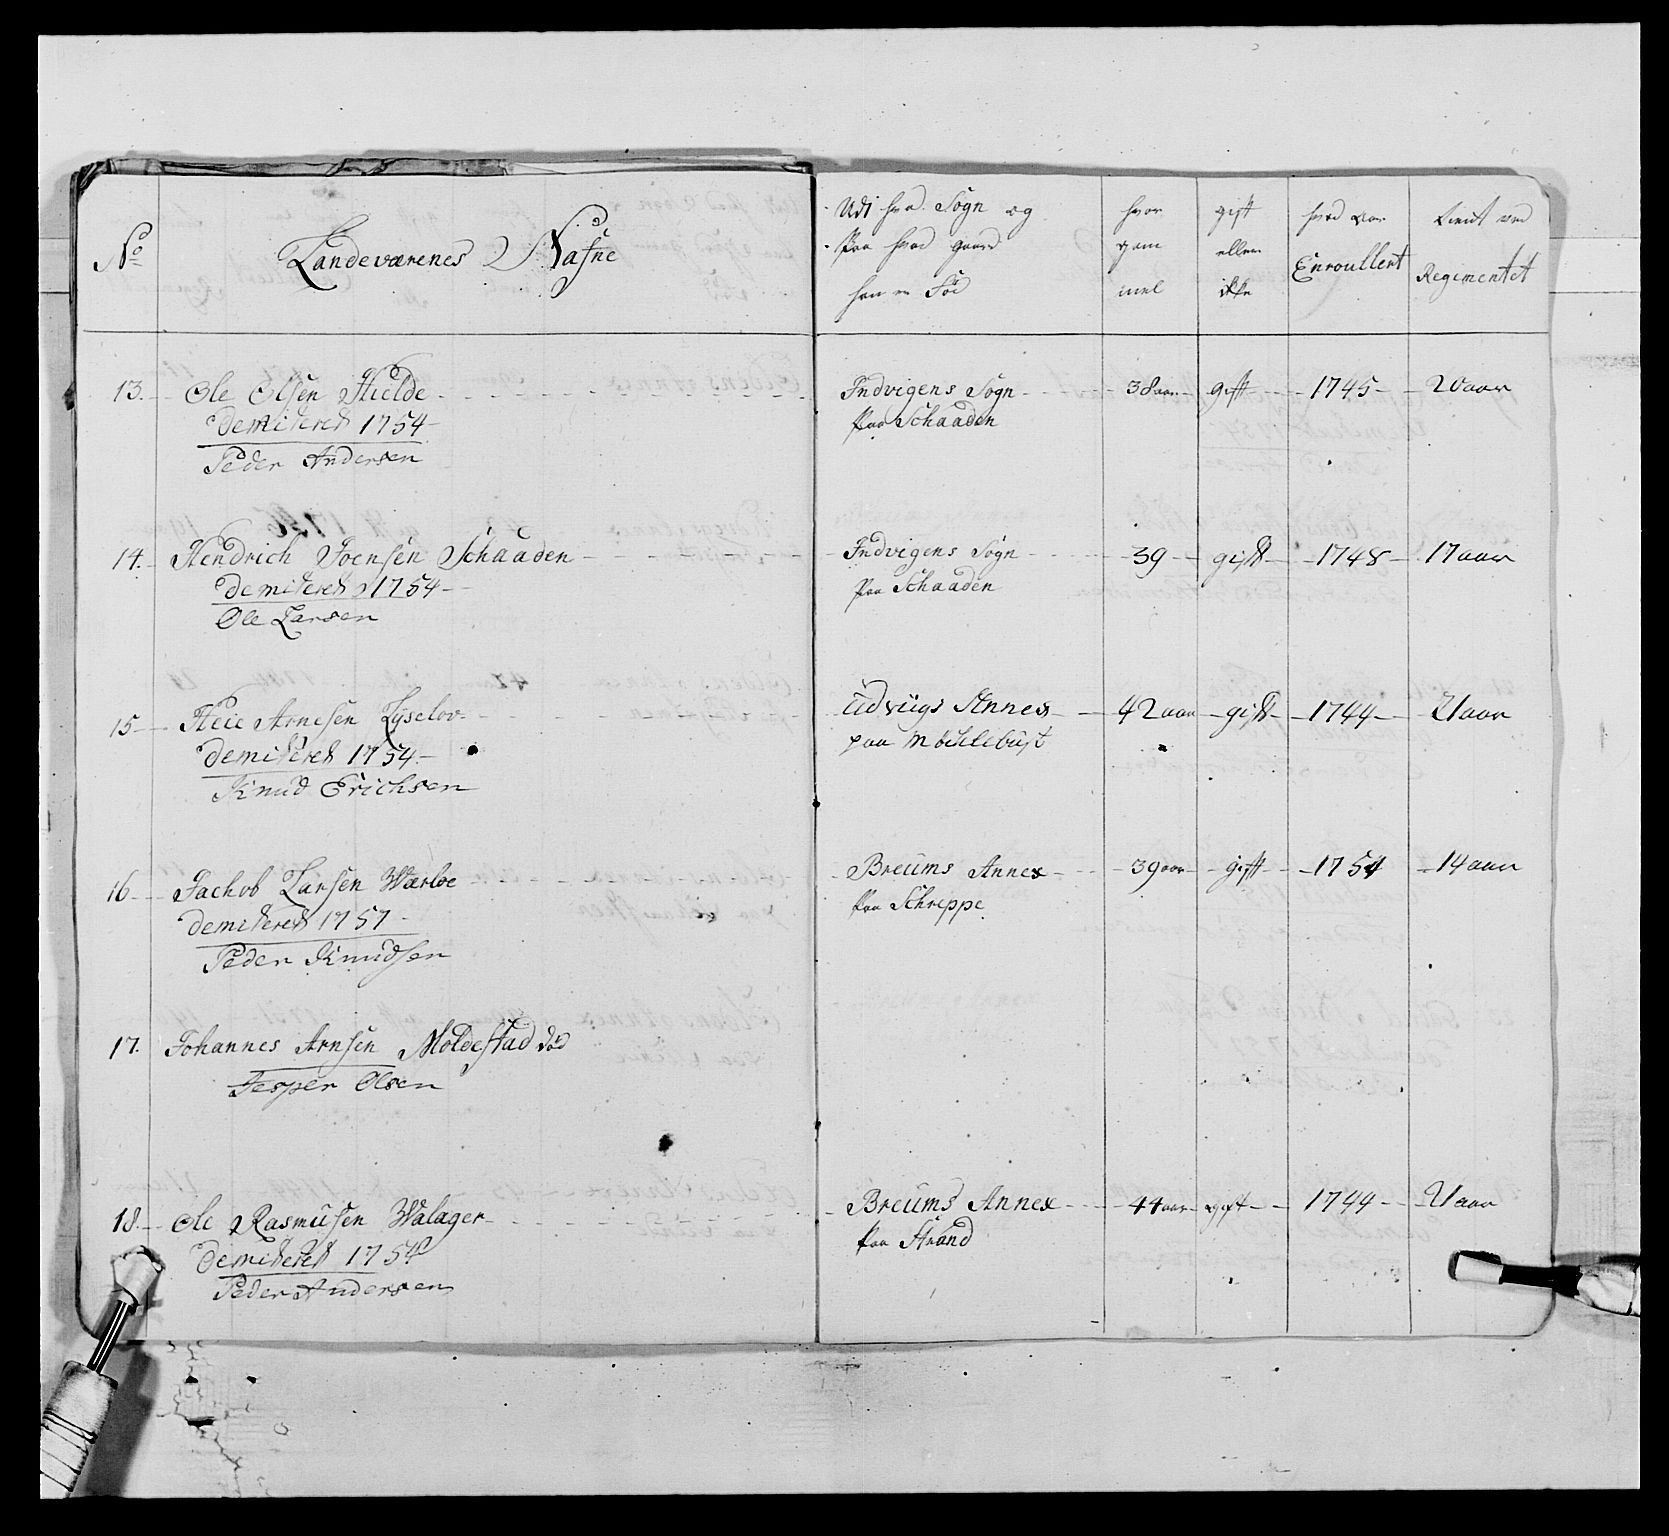 No
Landeværenes Nafne
Udi hvad Sogn og
Paa hvad gaard
han er Föd
hvor
gam
mel
gift
eller
ikke
hvad aar
Enroullert
tient ved
Regimentet
13. Ole Olsen Hielde Indvigens Sogn 38 aar gift 1745 20 aar
demiteret 1754 paa Schaaden
Peder Andersen
14. Hendrich Joensen Schaaden Indvigens Sogn 39 gift 1748 17 aar
demiteret 1754 paa Schaaden
Ole Larsen
15 Arnesen Udviigs Annex 42 aar gift 1744 21 aar
demiteret 1754 paa Möcklebüst
Knud Erichsen
16 Jachob Larsen Wærloe Breums Annex 39 aar gift 1751 14 aar
demiteret 1757 paa Schreppe
Peder Knudsen
17. Johannes Arnsen Moldestad död
Jesper Olsen
18. Ole Rasmüsen Walager Breums Annex 44 aar gift 1744 21 aar
demiteret 1754 paa Strand
Peder Andersen